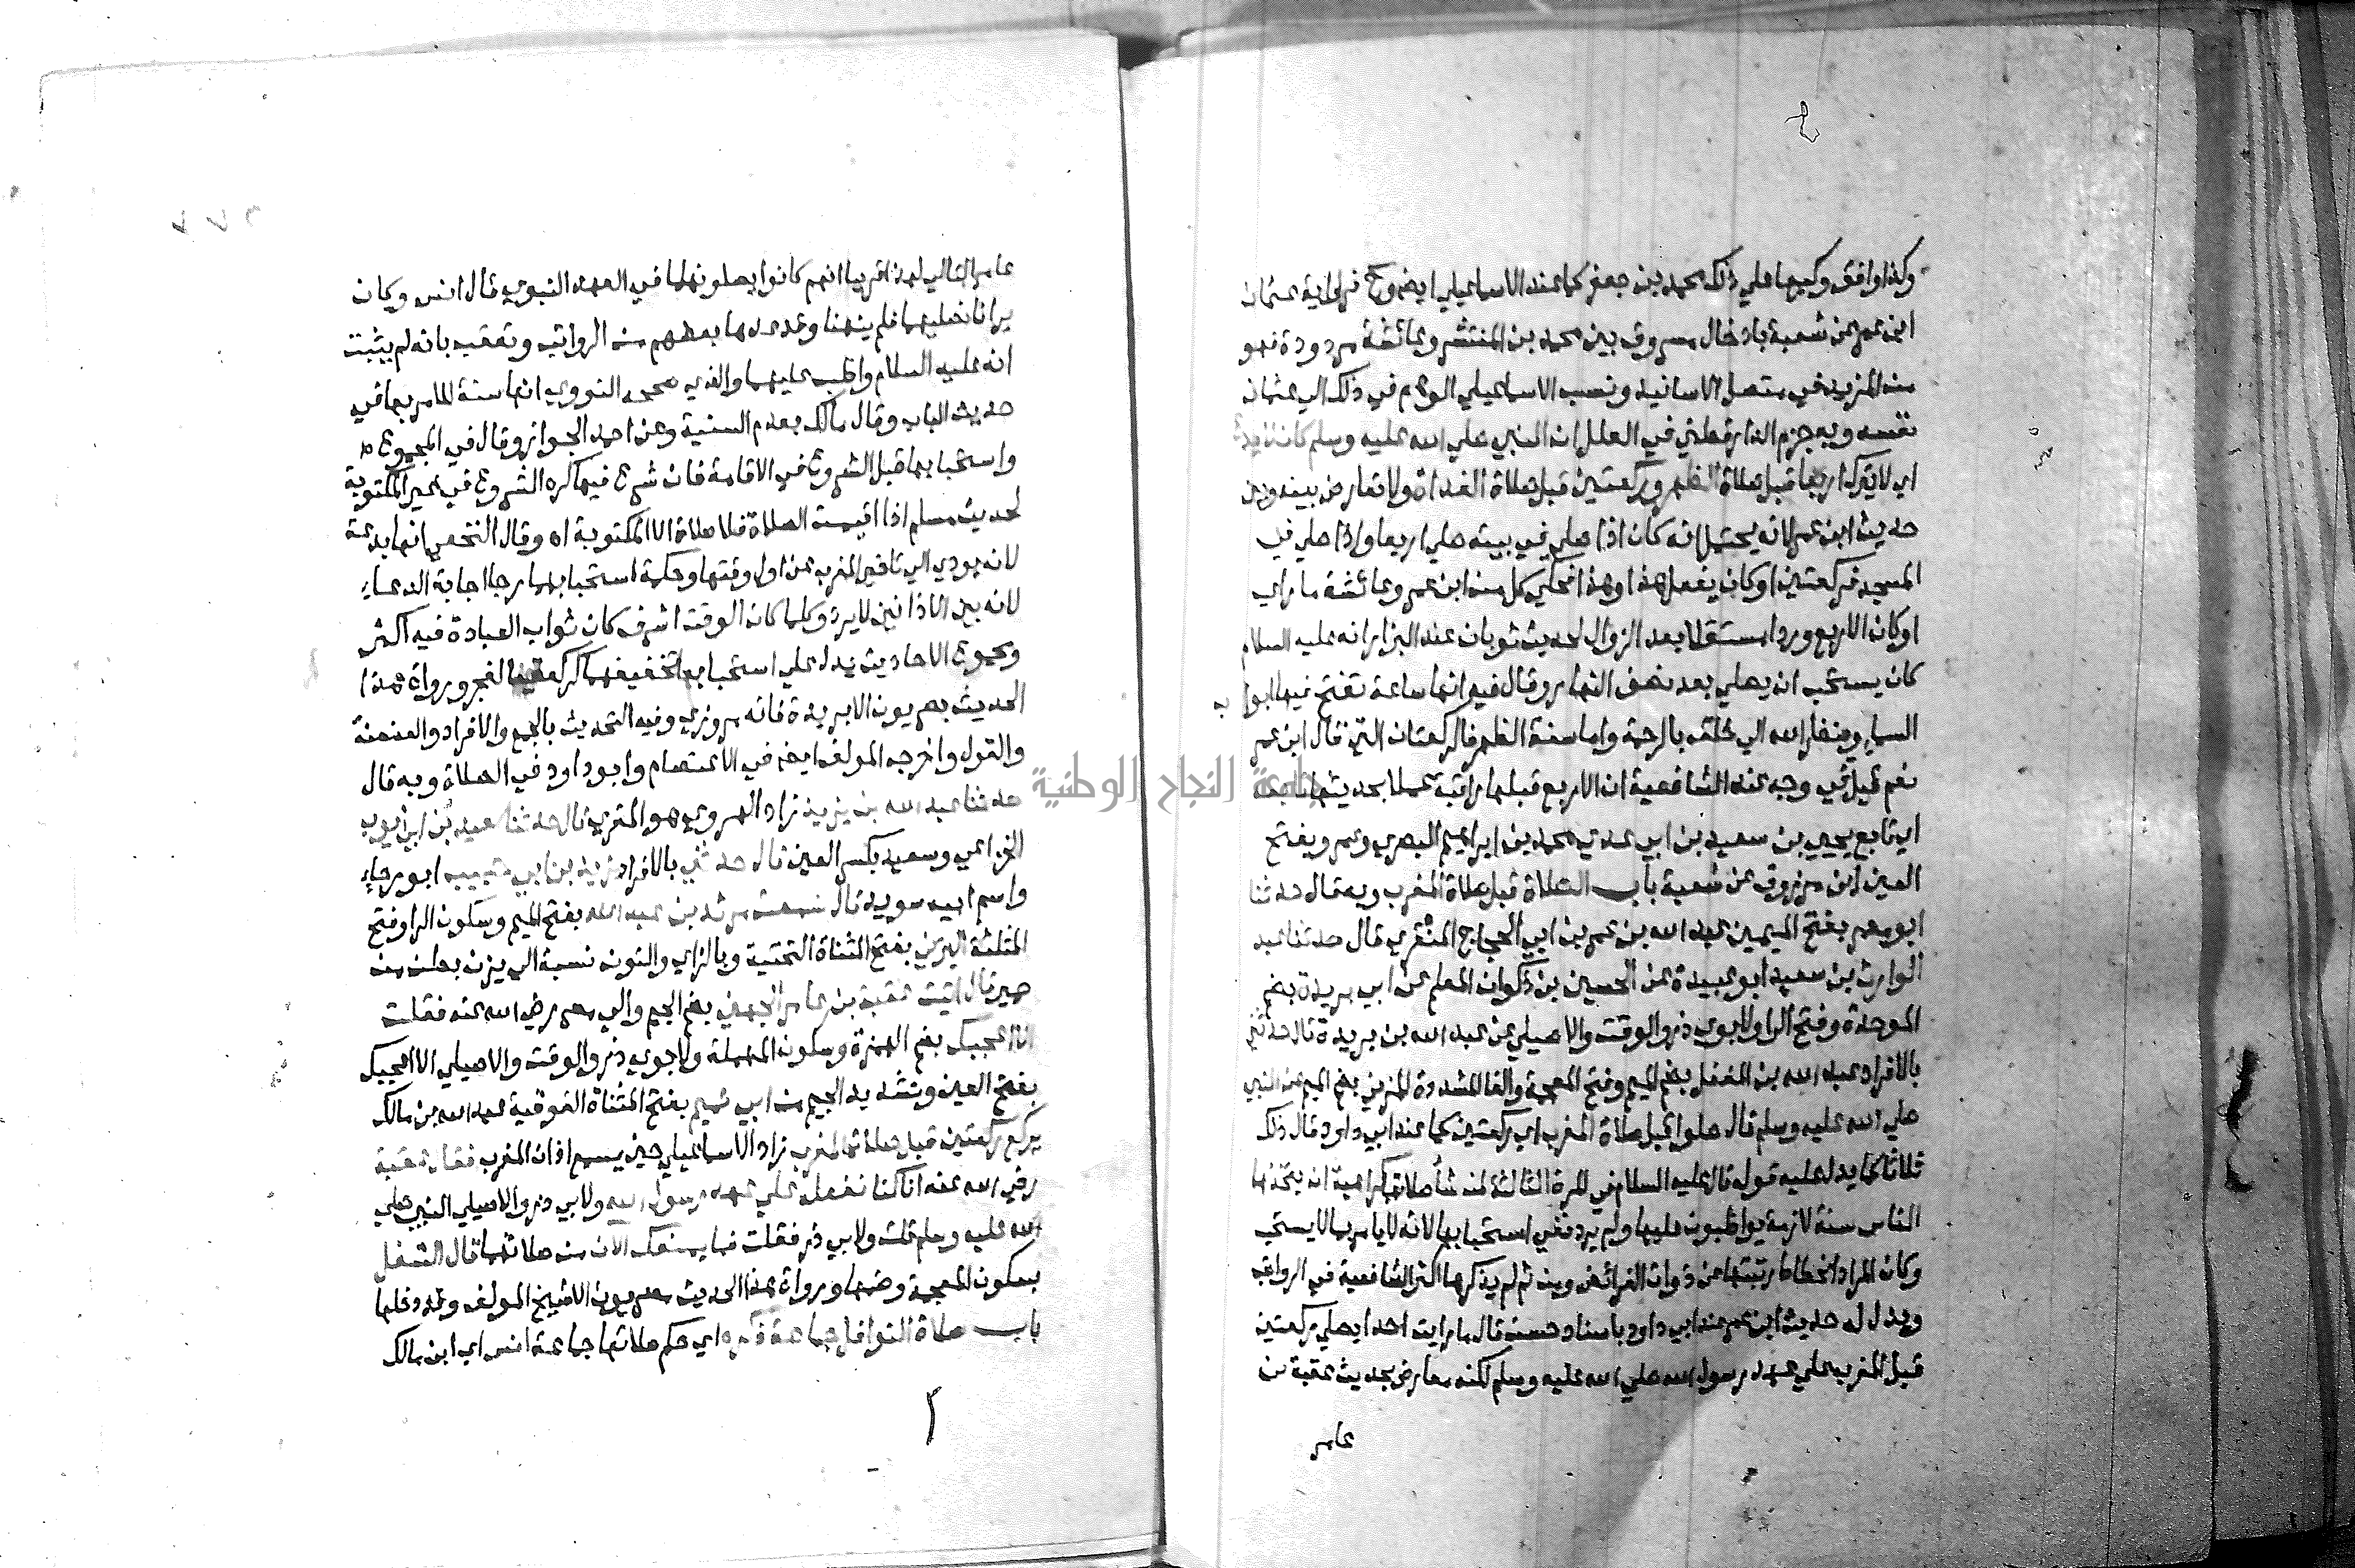 وكذا وافق وكيعا على ذلك محمد بن جعفر كما عند الاسماعيلي ايضا وح فرواية عثمان
ابن عمر عن شعبة بادخال مسروق بين محمد بن المنتشر وعائشة مردودة فهو
من المزيد في متصل الاسانيد ونسب الاسماعيلي الوهم في ذلك الي عثمان
نفسه وبه جزم الدارقطني في العلل ان النبي صلي الله عليه وسلم كان لا يدع
اي لا يترك اربعا قبل صلاة الظهر وركعتين قبل صلاة الغداة ولا تعارض بينه وبين
حديث ابن عمر لانه يحتمل انه كان اذا صلي في بيته صلي اربعا واذا صلي في
المسجد فركعتين او كان يفعل هذا وهذا فحكي كل من ابن عمر وعائشة ما راي
او كان الاربع وردا مستقلا بعد الزوال لحديث ثوبان عند البزار انه عليه السلام
كان يستحب ان يصلي بعد نصف النهار وقال فيه انها ساعة تفتح فيها ابواب
السماء وينظر الله الي خلقه بالرحمة واما سنة الظهر فالركعتان التي قال ابن عمر
نعم قيل في وجه عند الشافعية ان الاربع قبلها راتبة عملا بحديثها تابعه
اي تابع يحيي بن سعيد بن ابي عدي محمد بن ابراهيم البصري وعمرو بفتح
العين ابن مرزوق عن شعبة باب الصلاة قبل صلاة المغرب وبه قال حدثنا
ابو معمر بفتح الميمين عبد الله بن عمر بن ابي الحجاج المنقري قال حدثنا عبد
الوارث بن سعيد ابو عبيدة عن الحسين بن ذكوان المعلم عن ابي بريدة بضم
الموحدة وفتح الرا ولابوي ذر والوقت والاصيلي عن عبد الله بن بريدة قال حدثني
بالافراد عبد الله بن المغفل بضم الميم وفتح المعجمة والفا المشددة المزني بضم الميم عن النبي
صلي الله عليه وسلم قال صلوا قبل صلاة المغرب اي ركعتين كما عند ابي داود قال ذلك
ثلاثا كما يدل عليه قوله قال عليه السلام في المرة الثالثة لمن شأ صلاتها كراهية ان يتخذها
الناس سنة لازمة يواظبون عليها ولم يرد نفي استحبابها لانه لا يامر بما لا يستحب
وكان المراد انحطاط رتبتها عن ذوات الفرائض ومن ثم لم يذكرها اكثر الشافعية في الرواتب
ويدل له حديث ابن عمر عند ابي داود باسناد حسن قال ما رايت احدا يصلي ركعتين
قبل المغرب علي عهد رسول الله صلي الله عليه وسلم لكنه معارض بحديث عقبة بن
عامر
عامر التالي لهذا قريبا انهم كانوا يصلونها في العهد النبوي قال انس وكان
يرانا نصليها فلم ينهنا وعدها بعضهم من الرواتب وتعقب بانه لم يثبت
انه عليه السلام واظب عليها والذي صححه النووي انها سنة للامر بها في
حديث الباب وقال مالك بعدم السنية وعن احمد الجواز وقال في المجموع
واستحبابها قبل الشروع في الاقامة فان شرع فيها كره الشروع في غير المكتوبة
لحديث مسلم اذا اقيمت الصلاة فلا صلاة الا المكتوبة اه وقال النخعي انها بدعة
لانه يودي الي تاخير المغرب عن اول وقتها وحكمة استحبابها رجا اجابة الدعاء
لانه بين الاذانين لا يرد وكلما كان الوقت اشرف كان ثواب العبادة فيه اكثر
ومجموع الاحاديث يدل علي استحباب تخفيفهما كركعتي الفجر ورواة هذا
الحديث بصريون الا بريدة فانه مروزي وفيه التحديث بالجمع والافراد والعنعنة
والقول واخرجه المولف ايضا في الاعتصام وابو داود في الصلاة وبه قال
حدثنا عبد الله بن يزيد زاد الهروي هو المقري قال حدثنا سعيد بن ابي ايوب
الخزاعي وسعيد بكسر العين قال حدثني بالافراد يزيد بن ابي حبيب ابو رجاء
واسم ابيه سويد قال سمعت مرثد بن عبد الله بفتح الميم وسكون الرا وفتح
المثلثة اليزني بفتح المثناة التحتية وبالزاي والنون نسبة الي يزن بطن من
حمير قال اتيت عقبة بن عامر الجهني بضم الجيم والي مصر رضي الله عنه فقلت
الا اعجبك بضم الهمزة وسكون المهملة ولابوي ذر والوقت والاصيلي الا اعجبك
بفتح العين وتشديد الجيم من ابي تميم بفتح المثناة الفوقية عبد الله بن مالك
يركع ركعتين قبل صلاة المغرب زاد الاسماعيلي حين يسمع اذان المغرب فقال عقبة
رضي الله عنه انا كنا نفعله علي عهد رسول الله ولابي ذر والاصيلي النبي صلي
الله عليه وسلم قلت ولابي ذر فقلت فما يمنعك الان من صلاتها قال الشغل
بسكون المعجمة وضمها ورواة هذا الحديث مصريون الا شيخ المولف وقد دخلها
باب صلاة النوافل جماعة ذكره اي حكم صلاتها جماعة انس اي ابن مالك
جامعة النجاح الوطنية